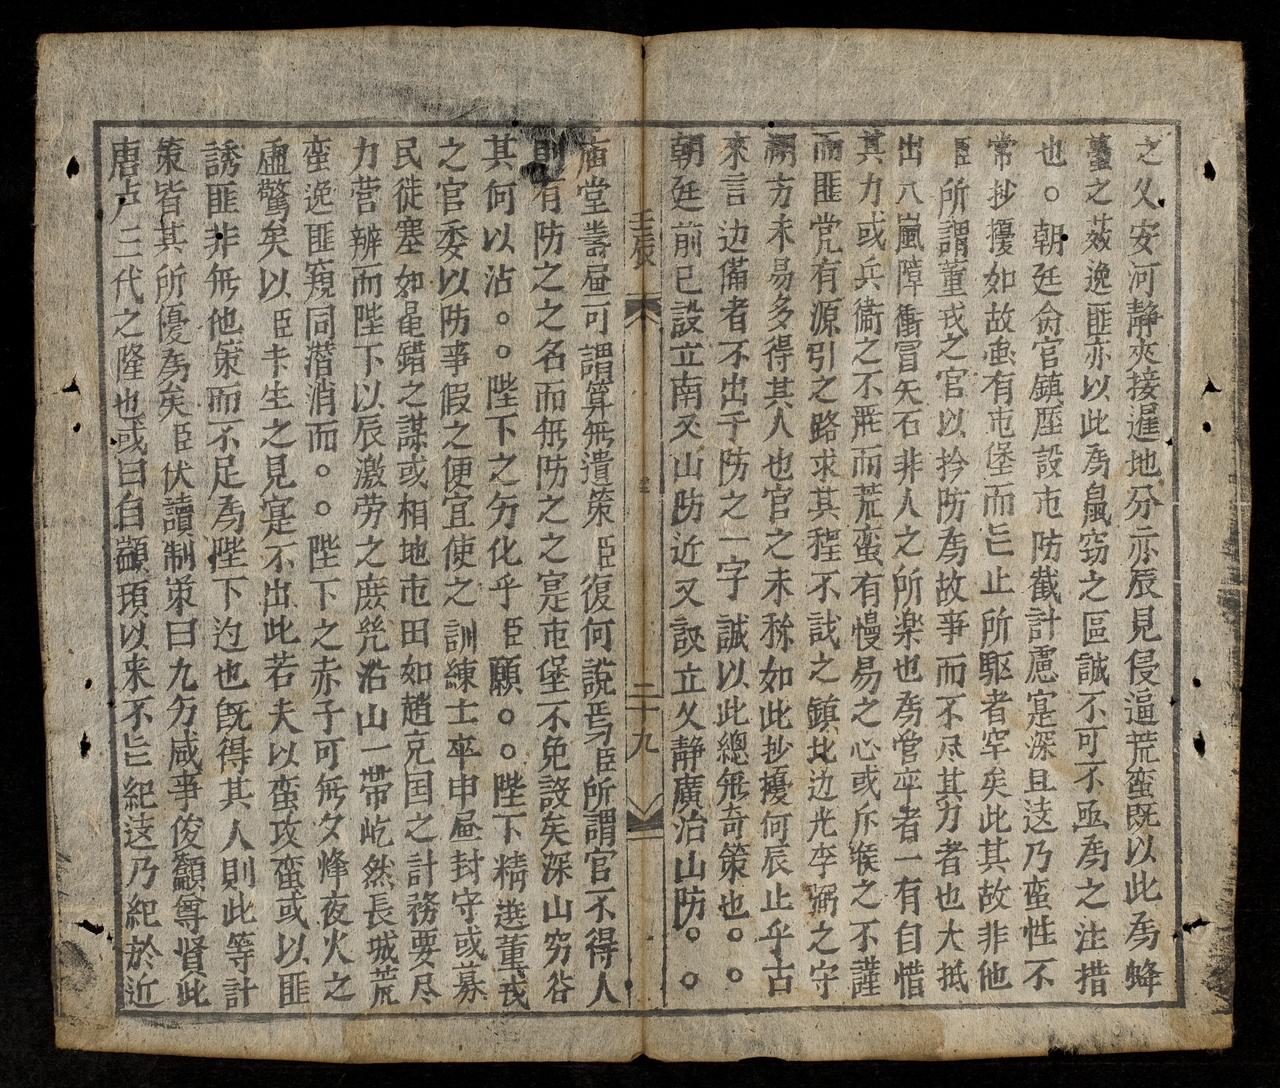 之久安河靜夾接暹地分亦辰見侵逼荒蛮既以此為蜂
蠆之茇逸匪亦以此為鼠窃之區誠不可不亟為之注措
也。朝廷僉官鎮壓設屯防截計慮寔深且这乃蛮性不
常抄擾如故虽有屯堡而止所駆者罕矣此其故非他
臣所謂董戎之官以扵防為故事而不尽其力者也大抵
出入嵐障衝冒矢石非人之所楽也為官卒者一有自惜
其力或兵衛之不飛而荒蛮有慢易之心或斥堠之不謹
而匪党有源引之路求其程不試之鎮北边光李弼之守
朔方未易多得其人也官之未称如此抄擾何辰止乎古
來言边備者不出于防之一字誠以此總無奇策也。。
朝廷前已設立南叉山防近又設立久静廣治山防。。
壬辰
二十九
庙堂籌届可謂算無遺策臣復何說焉臣所謂官不得人
則有防之之名而無防之之寔屯堡不免設矣深山穷谷
其何以沾。。陛下之㐫化乎臣願。。陛下精選董戎
之官委以防事假之便宜使之訓練士卒申届封守或募
民徙塞如晁錯之謀或相地屯田如趙克国之計務要尽
力营辨而陛下以辰激劳之庶㡬沿山一帶屹然長城荒
蛮逸匪窺同潜消而。。陛下之赤子可無夕烽夜火之
虛驚矣以臣卡生之見寔不出此若夫以蛮攻蛮或以匪
誘匪非無他策而不足為陛下边也既得其人則此等計
策皆其所優為矣臣伏讀制策曰九㐫咸事俊顲尊贤此
唐卢三代之隆也或曰自顓頊以来不紀这乃紀於近